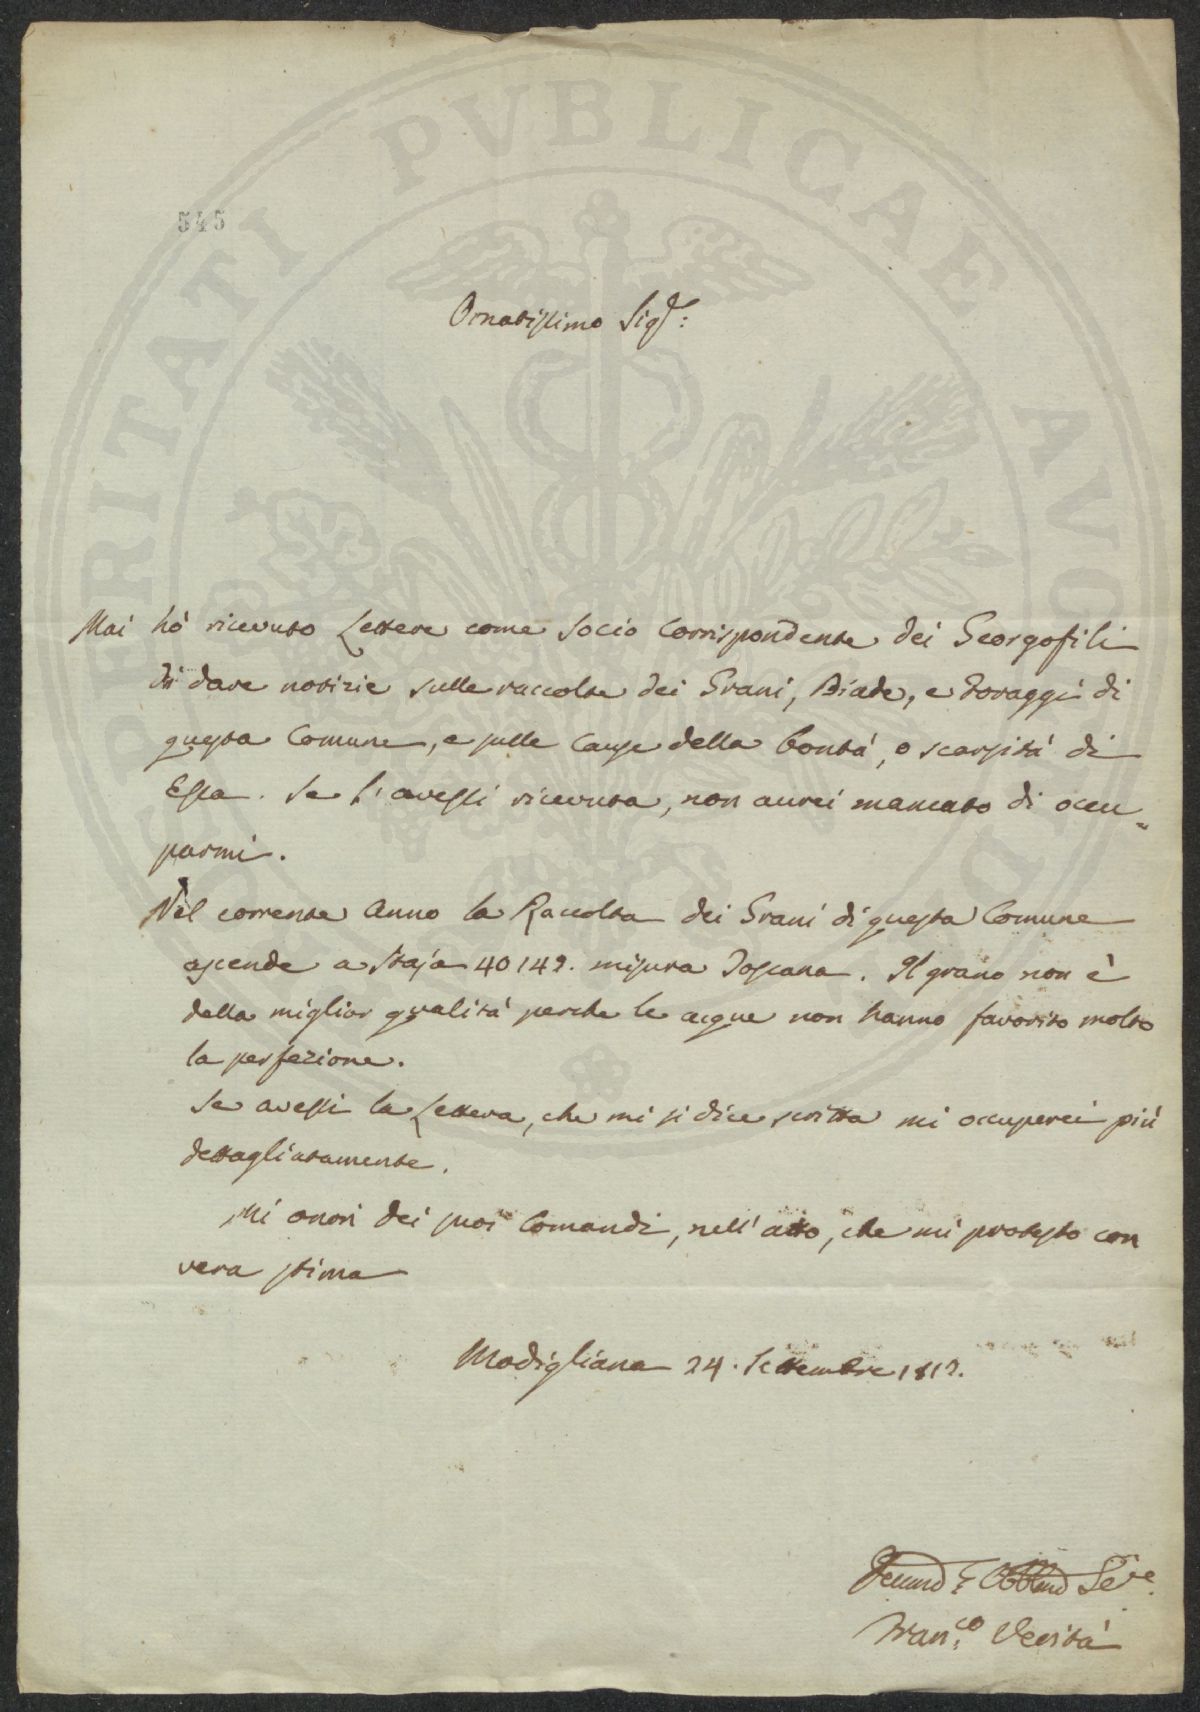 545
Ornatissimo Sig.r:
Mai hò ricevuto Lettere come Socio Corrispondente dei Georgofili
di dare notizie sulle raccolte dei Grani, Biade, e Foraggi di
questa Comune, e sulle Cause della bontà, o scarsità di
Essa. Se l'avessi ricevuta, non aurei mancato di occu=
parmi.
Nel corrente Anno la Raccolta dei Grani di questa Comune
ascende a Staja 40142. misura Toscana. Il grano non è
della miglior qualità perche le acque non hanno favorito molto
la perfezione.
Se avessi la Lettera, che mi si dice scritta mi occuperei più
dettagliatamente.
Mi onori dei suoi Comandi, nell'atto, che mi protesto con
vera stima
Modigliana 24. Settembre 1812.
Obblmo
Fran.co Verità
PRITATI PVBLICAE AVG